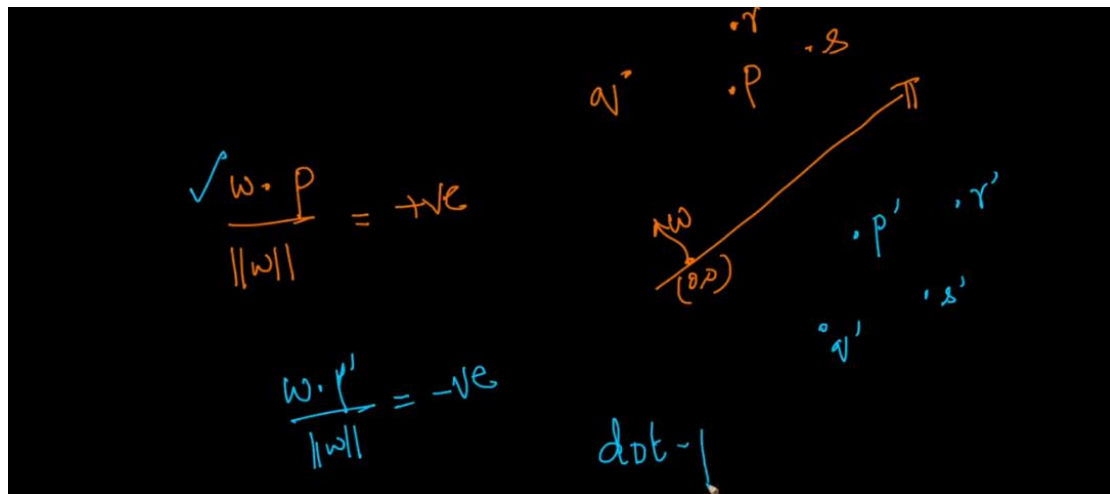 .r
.s
q.
.p
π
✓ w. p / ||w|| = +ve
w
(0,0)
.p'
.r'
.s'
q'
w. p' / ||w|| = -ve
dot -